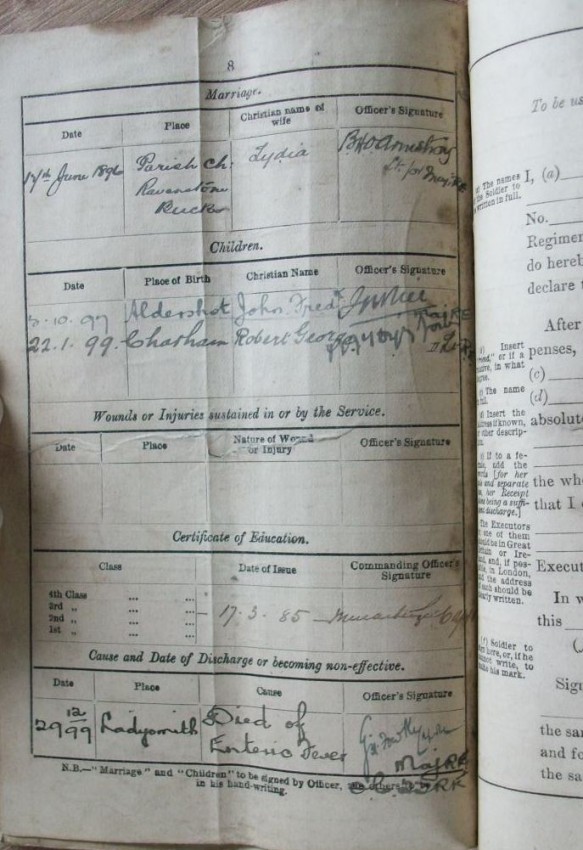 8
Marriage.
Date Place Christian name of wife Officer's Signature
17th June 1896 Parish Ch. Lydia Armstrong
Ravenstone Lt. for Maj. RE
Bucks
Children.
Date Place of Birth Christian Name Officer's Signature
5-10.97 Aldershot John Fredk Maj RE
22.1.99. Chatham Robert George
Wounds or Injuries sustained in or by the Service.
Date Place Nature of Wound or Injury Officer's Signature
Certificate of Education.
Class Date of Issue Commanding Officer's Signature
4th Class ... ...
3rd „ ... ...
2nd „ ... ... – 17.3.85
1st „ ... ...
Cause and Date of Discharge or becoming non-effective.
Date Place Cause Officer's Signature
29 12/99 Ladysmith Died of
Enteric Fever Maj RE
N.B.—"Marriage" and "Children" to be signed by Officer, the others
in his hand-writing.
To be us
The names
the Soldier to
written in full.
I, (a)
No.
Regimen
do hereb
declare t
After
Insert
or if a
in what
penses,
(c)
The name
(d)
Insert the
if known,
other descrip-
absolut
If to a fe-
add the
[for her
and separate
her Receipt
being a suffi-
discharge.]
the wh
that I
The Executors
one of them
be in Great
or Ire-
and, if pos-
in London,
the address
each should be
written.
Execut
In w
this
(f) Soldier to
here, or, if he
cannot write, to
his mark.
Sign
the sa
and fo
the sa